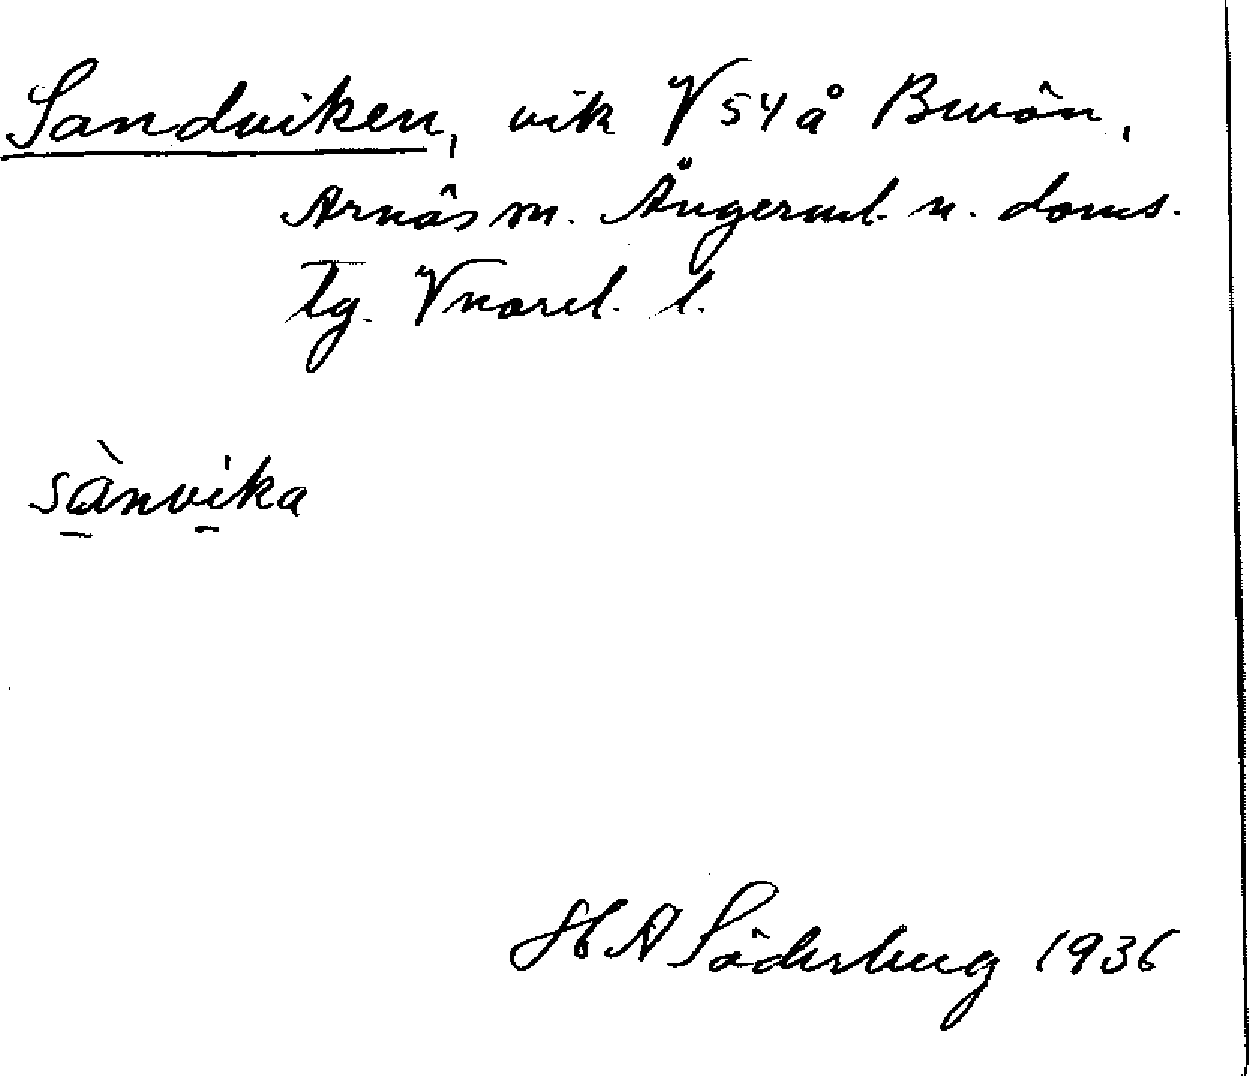 Sandviken, vik V sy å Bruön,
Arnäs sn. Ångerml. n. doms.
tg. Vnorrl. l.
sànvika
H A Söderberg 1936